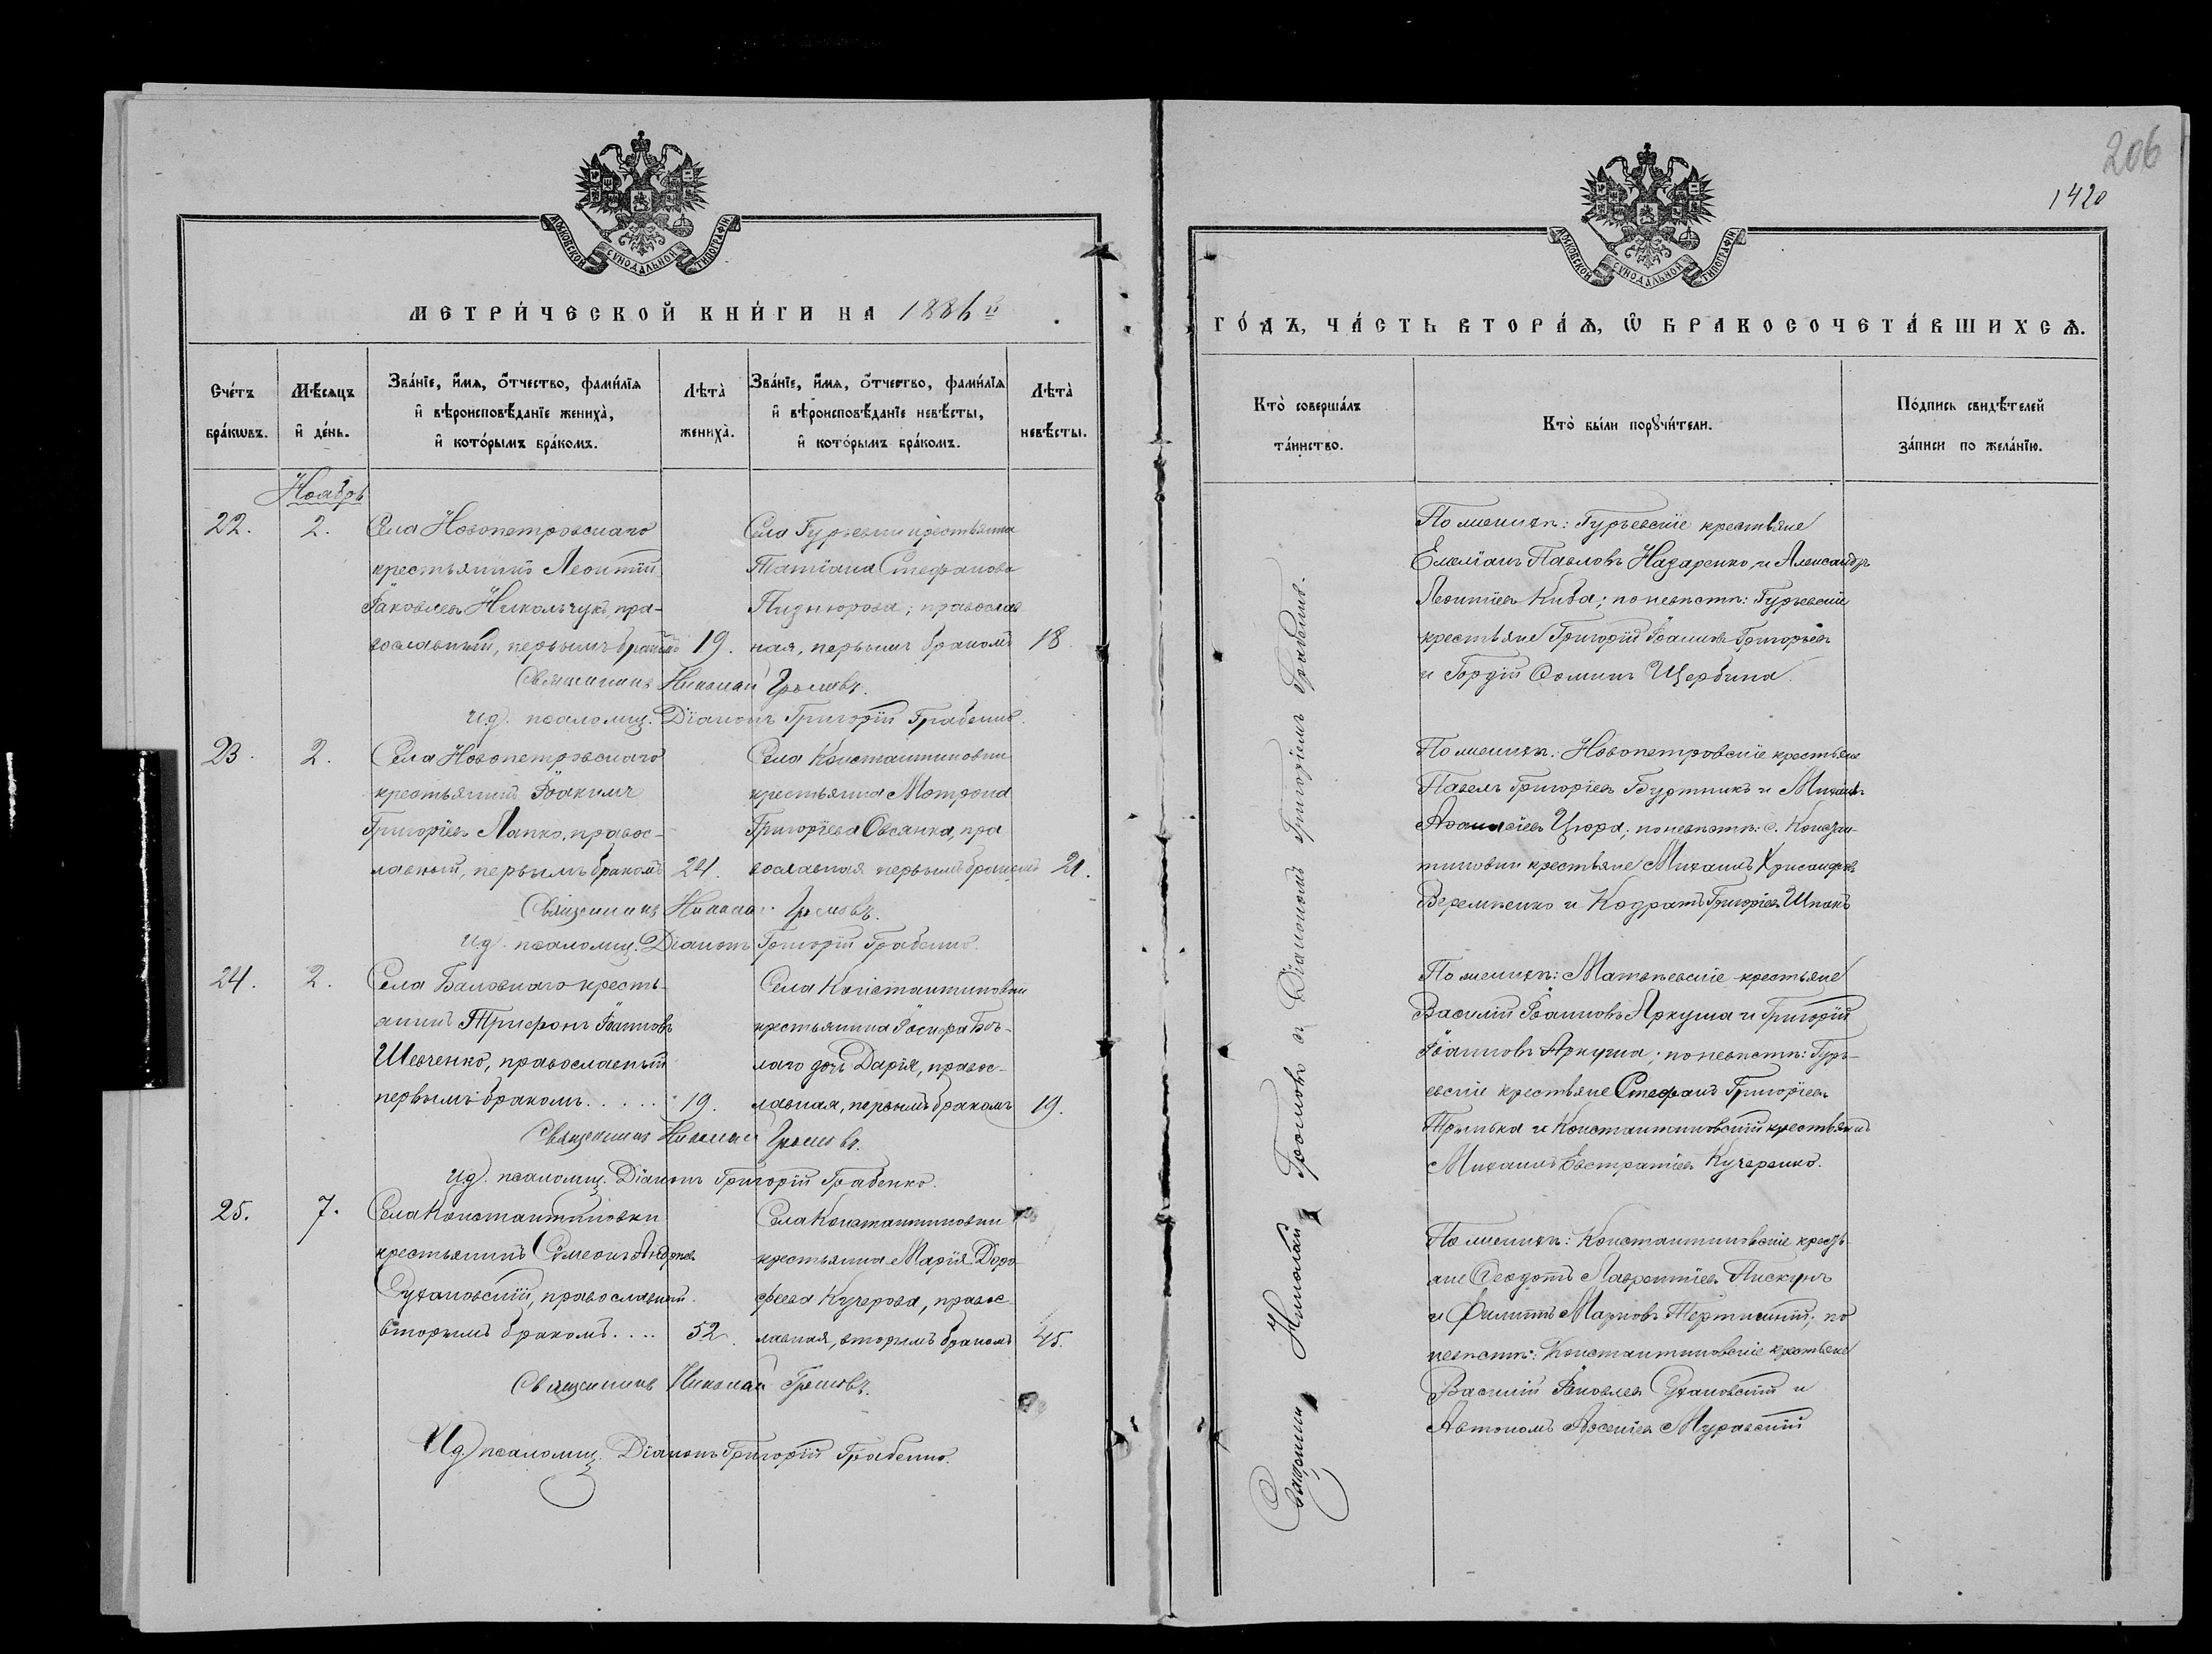 206
1420
МОСКОВСКОЙ СУНОДАЛЬНОЙ ТИПОГРАФІИ
МЕТРИ́ЧЕСКОЙ КНИ́ГИ НА 1886й
Сче́тъ бра́кωвъ.
Мѣ́сяцъ и҆ де́нь.
Зва́нїе, и҆́мѧ, ѻ҆́тчество, фами́лїѧ и҆ вѣроисповѣ́данїе жениха̀, и҆ кото́рымъ бра́комъ.
Лѣта̀ жениха̀.
Зва́нїе, и҆́мѧ, ѻ҆́тчество, фами́лїѧ и҆ вѣроисповѣ́данїе невѣ́сты, и҆ кото́рымъ бра́комъ.
Лѣта̀ невѣ́сты.
Ноябрь
22.
2.
Села Новопетровскаго
крестьянинъ Леонтій
Іаковлевъ Никольчукъ, пра-
вославный, первымъ бракомъ
19.
Села Гурьевки крестьянка
Татіана Стефанова
Пиднюрова; православ
ная, первымъ бракомъ
18
Священникъ Николай Громовъ.
Ид. псаломщ. Діаконъ Григорій Грабенко.
23.
2.
Села Новопетровскаго
крестьянинъ Іоакимъ
Григоріевъ Лапко, правос-
лавный, первымъ бракомъ
24.
Села Константиновки
крестьянка Матрона
Григоріева Овсянка, пра
вославная первымъ бракомъ
21.
Священникъ Николай Громовъ.
Ид. псаломщ. Діаконъ Григорій Грабенко.
24.
2.
Села Баловнаго кресть-
янинъ Трифонъ Іоанновъ
Шевченко, православный
первымъ бракомъ.....
19.
Села Константиновки
крестьянина Іосифа Бѣ-
лаго дочь Дарія, правос-
лавная, первымъ бракомъ
19.
Священникъ Николай Громовъ.
Ид. псаломщ. Діаконъ Григорій Грабенко.
25.
7.
Села Константиновки
крестьянинъ Симеонъ Андреевъ
Сухановскій, православный.
вторымъ бракомъ....
52.
Села Константиновки
крестьянка Марія Доро-
феева Кучерова, правос-
лавная, вторымъ бракомъ
45.
Священникъ Николай Громовъ.
Ид. псаломщ. Діаконъ Григорій Грабенко.
МОСКОВСКОЙ СУНОДАЛЬНОЙ ТИПОГРАФІИ
ГО́ДЪ, ЧА́СТЬ ВТОРА́Ѧ, Ѡ҆ БРАКОСОЧЕТА́ВШИХСѦ.
Кто̀ соверша́лъ та́инство.
Кто̀ бы́ли порꙋчи́тели.
По́дпись свидѣ́телей за́писи по жела́нїю.
Священникъ Николай Громовъ съ Діакономъ Григоріемъ Грабенко.
По женихѣ: Гурьевскіе крестьяне
Емеліанъ Павловъ Назаренко, и Александръ
Леонтіевъ Киба; по невѣстѣ: Гурьевскіе
крестьяне Григорій Іоанновъ Григорьевъ
и Гордій Ѳоминъ Щербина.
По женихѣ: Новопетровскіе крестьяне
Павелъ Григоріевъ Буртникъ и Михаилъ
Аѳанасіевъ Цюра; по невѣстѣ: с. Констан-
тиновки крестьяне Михаилъ Хрисанфовъ
Веремѣенко и Кодратъ Григоріевъ Шпакъ
По женихѣ: Матвѣевскіе крестьяне
Василій Іоанновъ Аркуша и Григорій
Іоанновъ Аркуша; по невѣстѣ: Гурь-
евскіе крестьяне Стефанъ Григоріевъ
и Константиновскій крестьянинъ
Михаилъ Евстратіевъ Кучеренко.
По женихѣ: Константиновскіе кресть-
яне Ѳеодотъ Лаврентіевъ Пискунъ
и Филиппъ Марковъ Тертишный; по
невѣстѣ: Константиновскіе крестьяне
Василій Яковлевъ Сухановскій и
Автономъ Арсеніевъ Муравскій